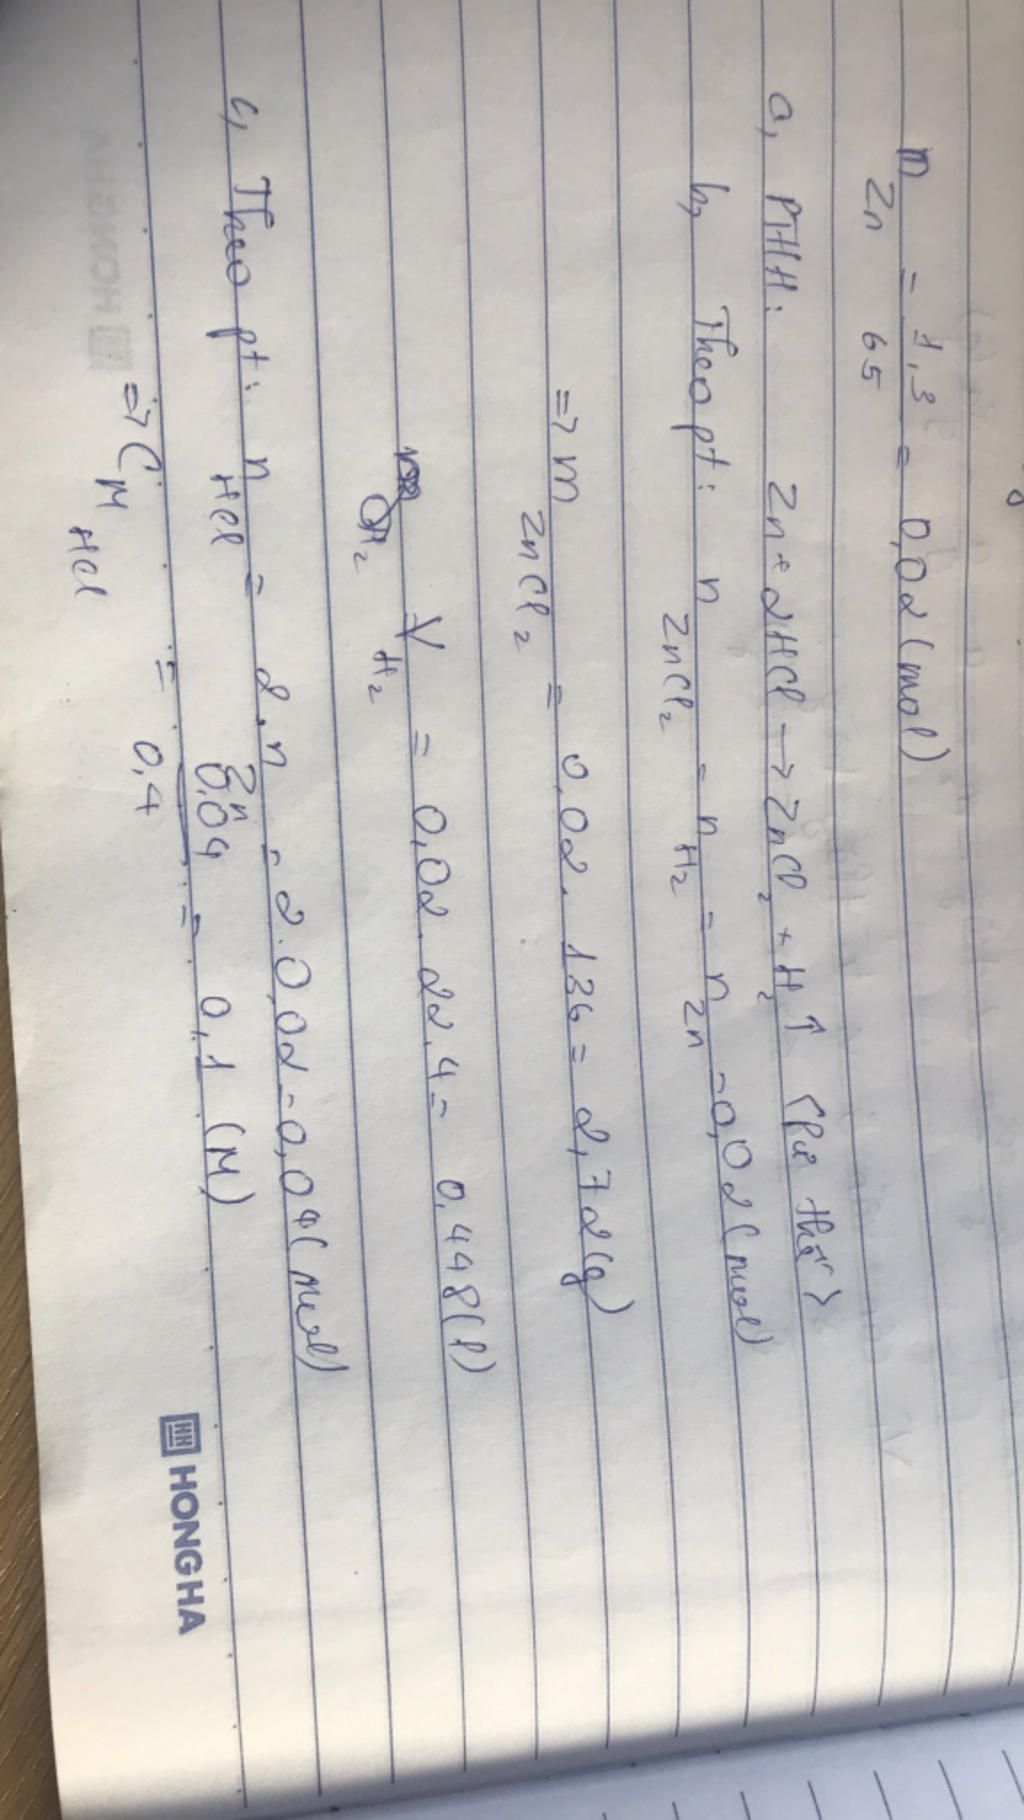 n Zn = 1,3 / 65 = 0,02 (mol)
a, PTHH: Zn + 2HCl → ZnCl2 + H2 ↑
b, Theo pt: n ZnCl2 = n H2 = n Zn = 0,02 (mol)
=> m ZnCl2 = 0,02 . 136 = 2,72 (g)
V H2 = 0,02 . 22,4 = 0,448 (l)
c, Theo pt: n HCl = 2 . n Zn = 2 . 0,02 = 0,04 (mol)
=> CM HCl = 0,04 / 0,4 = 0,1 (M)
HONG HA